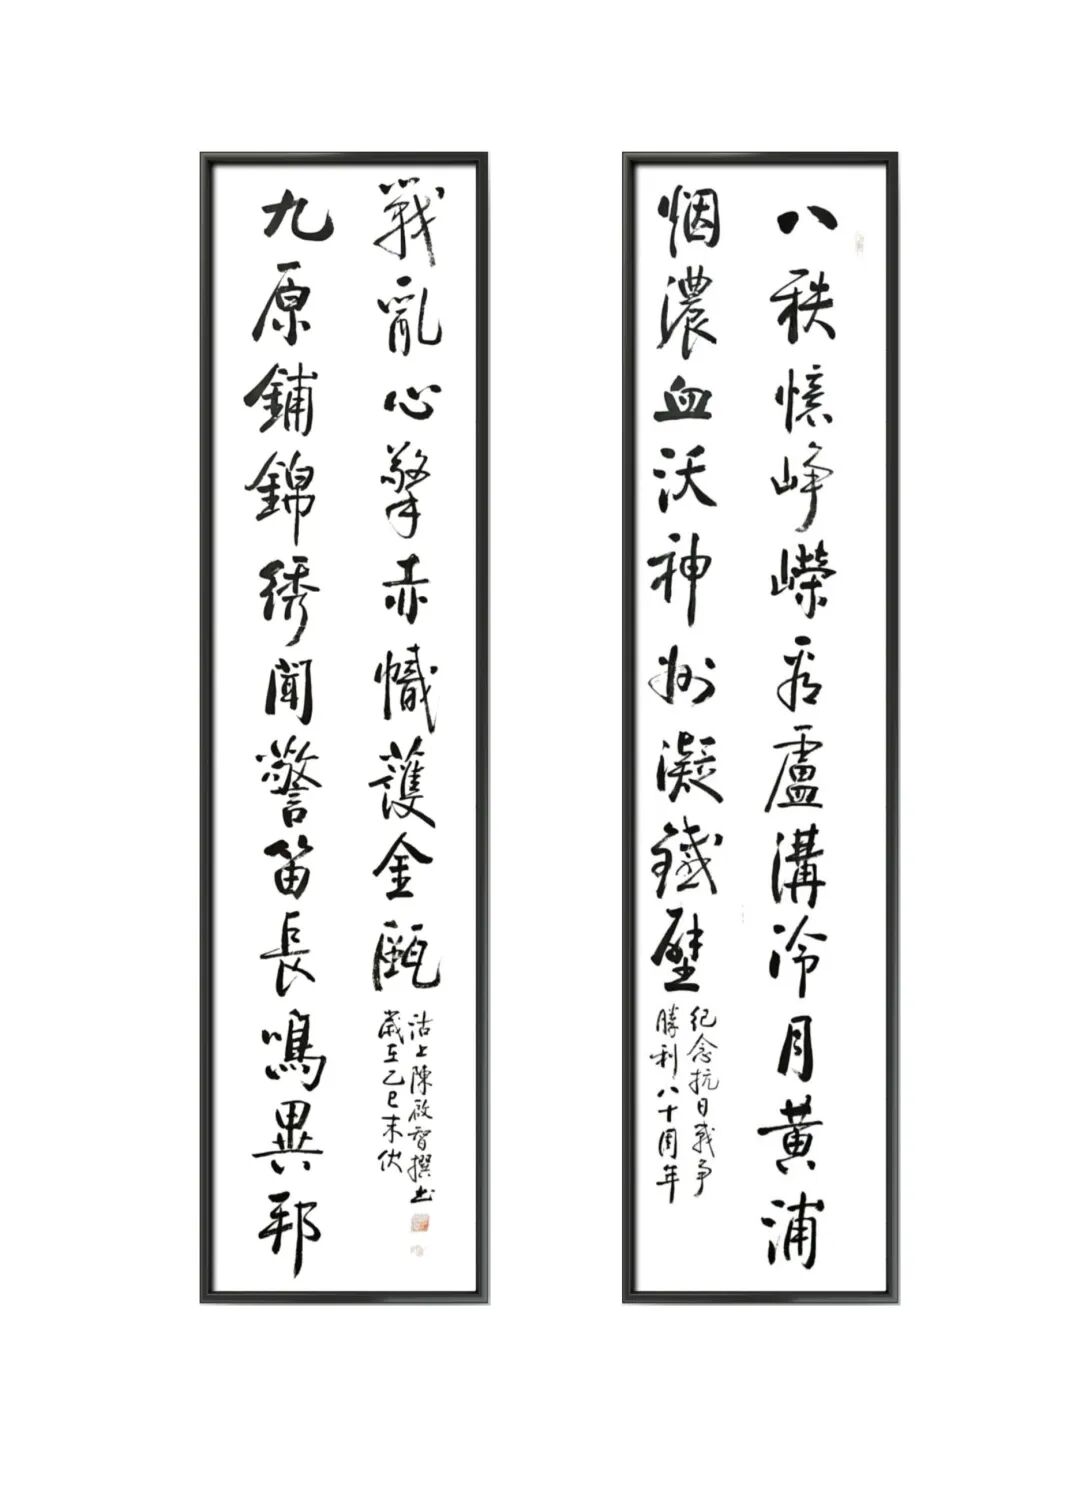 八秩憶峥嶸看盧溝冷月黄浦
烟濃血沃神州凝鐵壁
紀念抗日戰争
勝利八十周年
九原鋪錦绣聞警笛長鳴異邦
戰亂心擎赤幟護金甌
沽上陳啟智撰书
歲在乙巳末伏